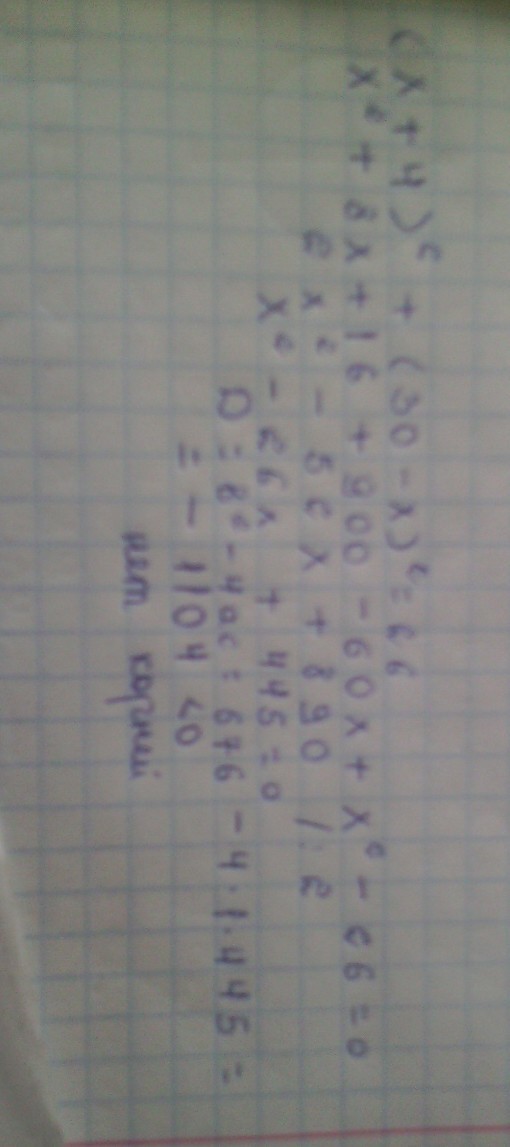 (x+4)² + (30-x)² = 26
x² + 8x + 16 + 900 - 60x + x² - 26 = 0
2x² - 52x + 890 /:2
x² - 26x + 445 = 0
D = B² - 4ac = 676 - 4·1·445 =
= - 1104 <0
нет корней